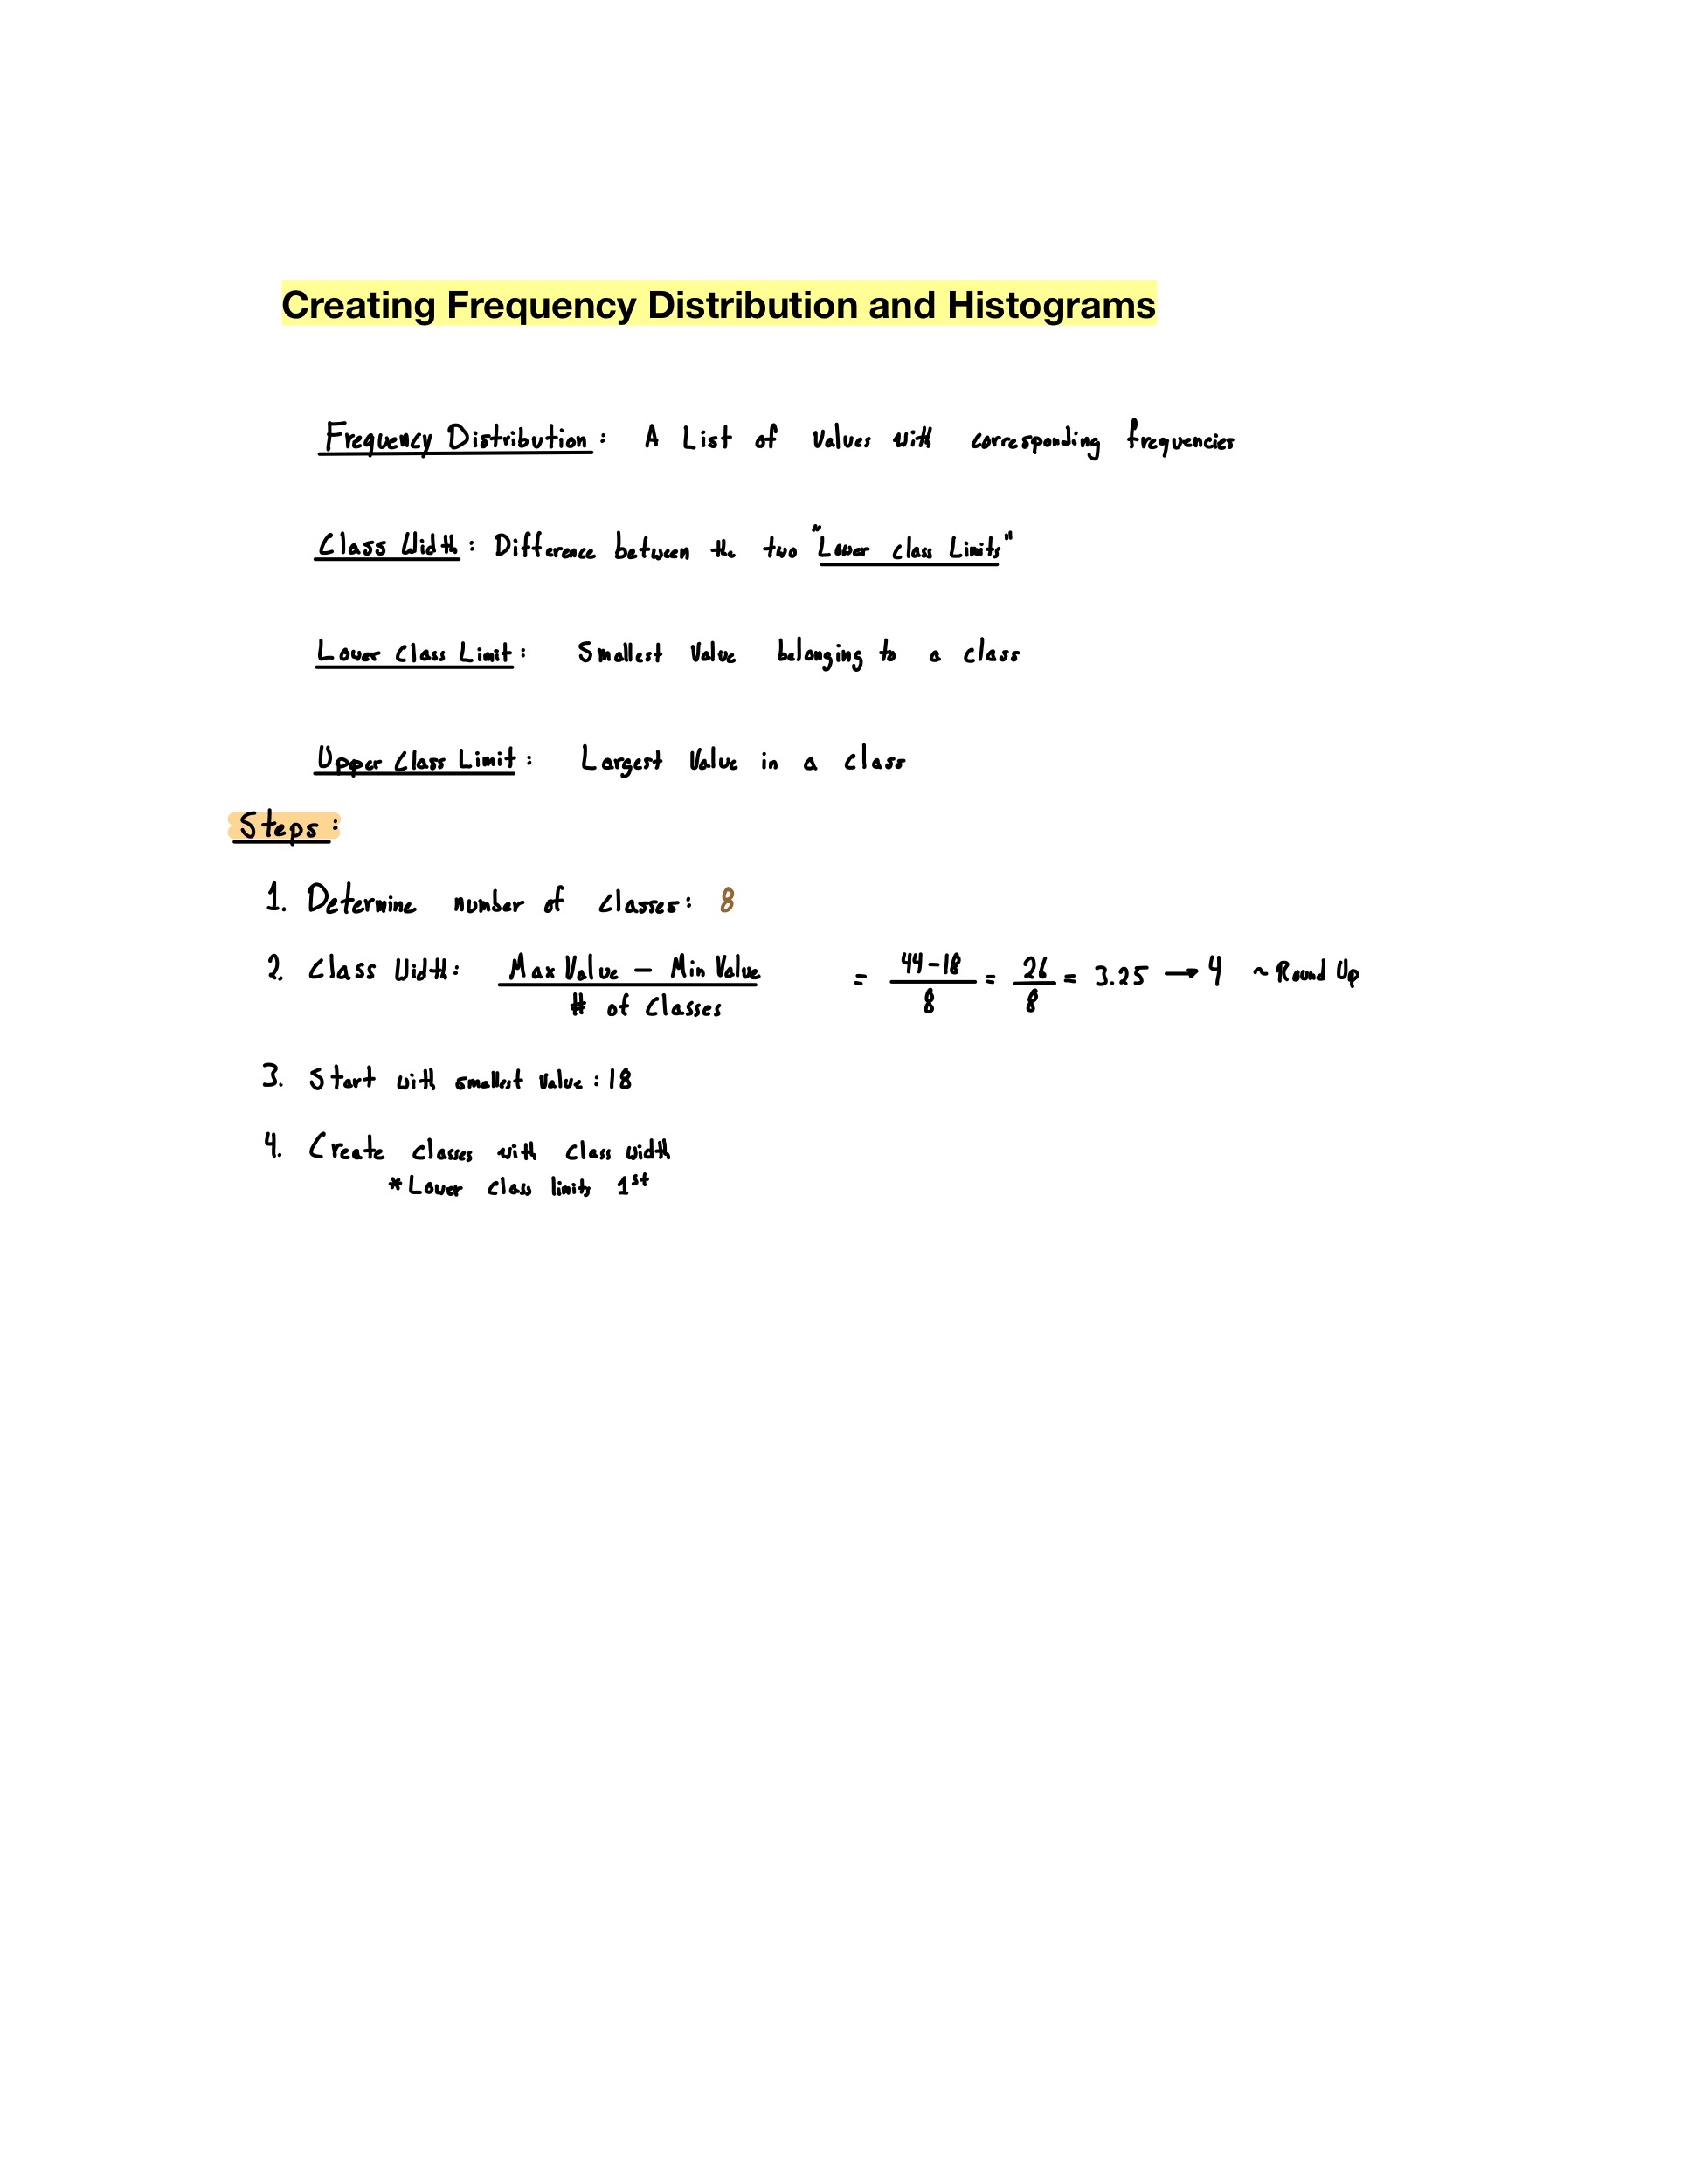 Creating Frequency Distribution and Histograms
Frequency Distribution: A List of Values with corresponding frequencies
Class Width: Difference between the two "Lower class Limits"
Lower Class Limit: Smallest Value belonging to a class
Upper Class Limit: Largest Value in a class
Steps:
1. Determine number of classes: 8
2. Class Width: Max Value - Min Value / # of Classes = 44-18 / 8 = 26 / 8 = 3.25 → 4 ~ Round Up
3. Start with smallest value: 18
4. Create classes with class width
* Lower class limits 1st